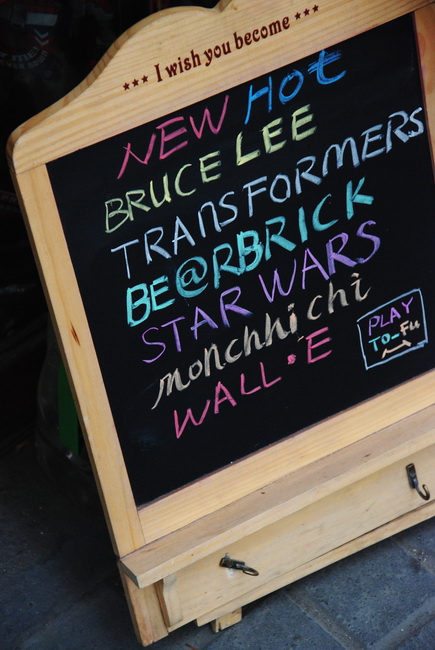 *** I wish you become ***
NEW HOt
BRUCE LEE
TRANSFORMERS
BE@RBRICK
STAR WARS
monchhichi
WALL•E
PLAY
TO-Fu